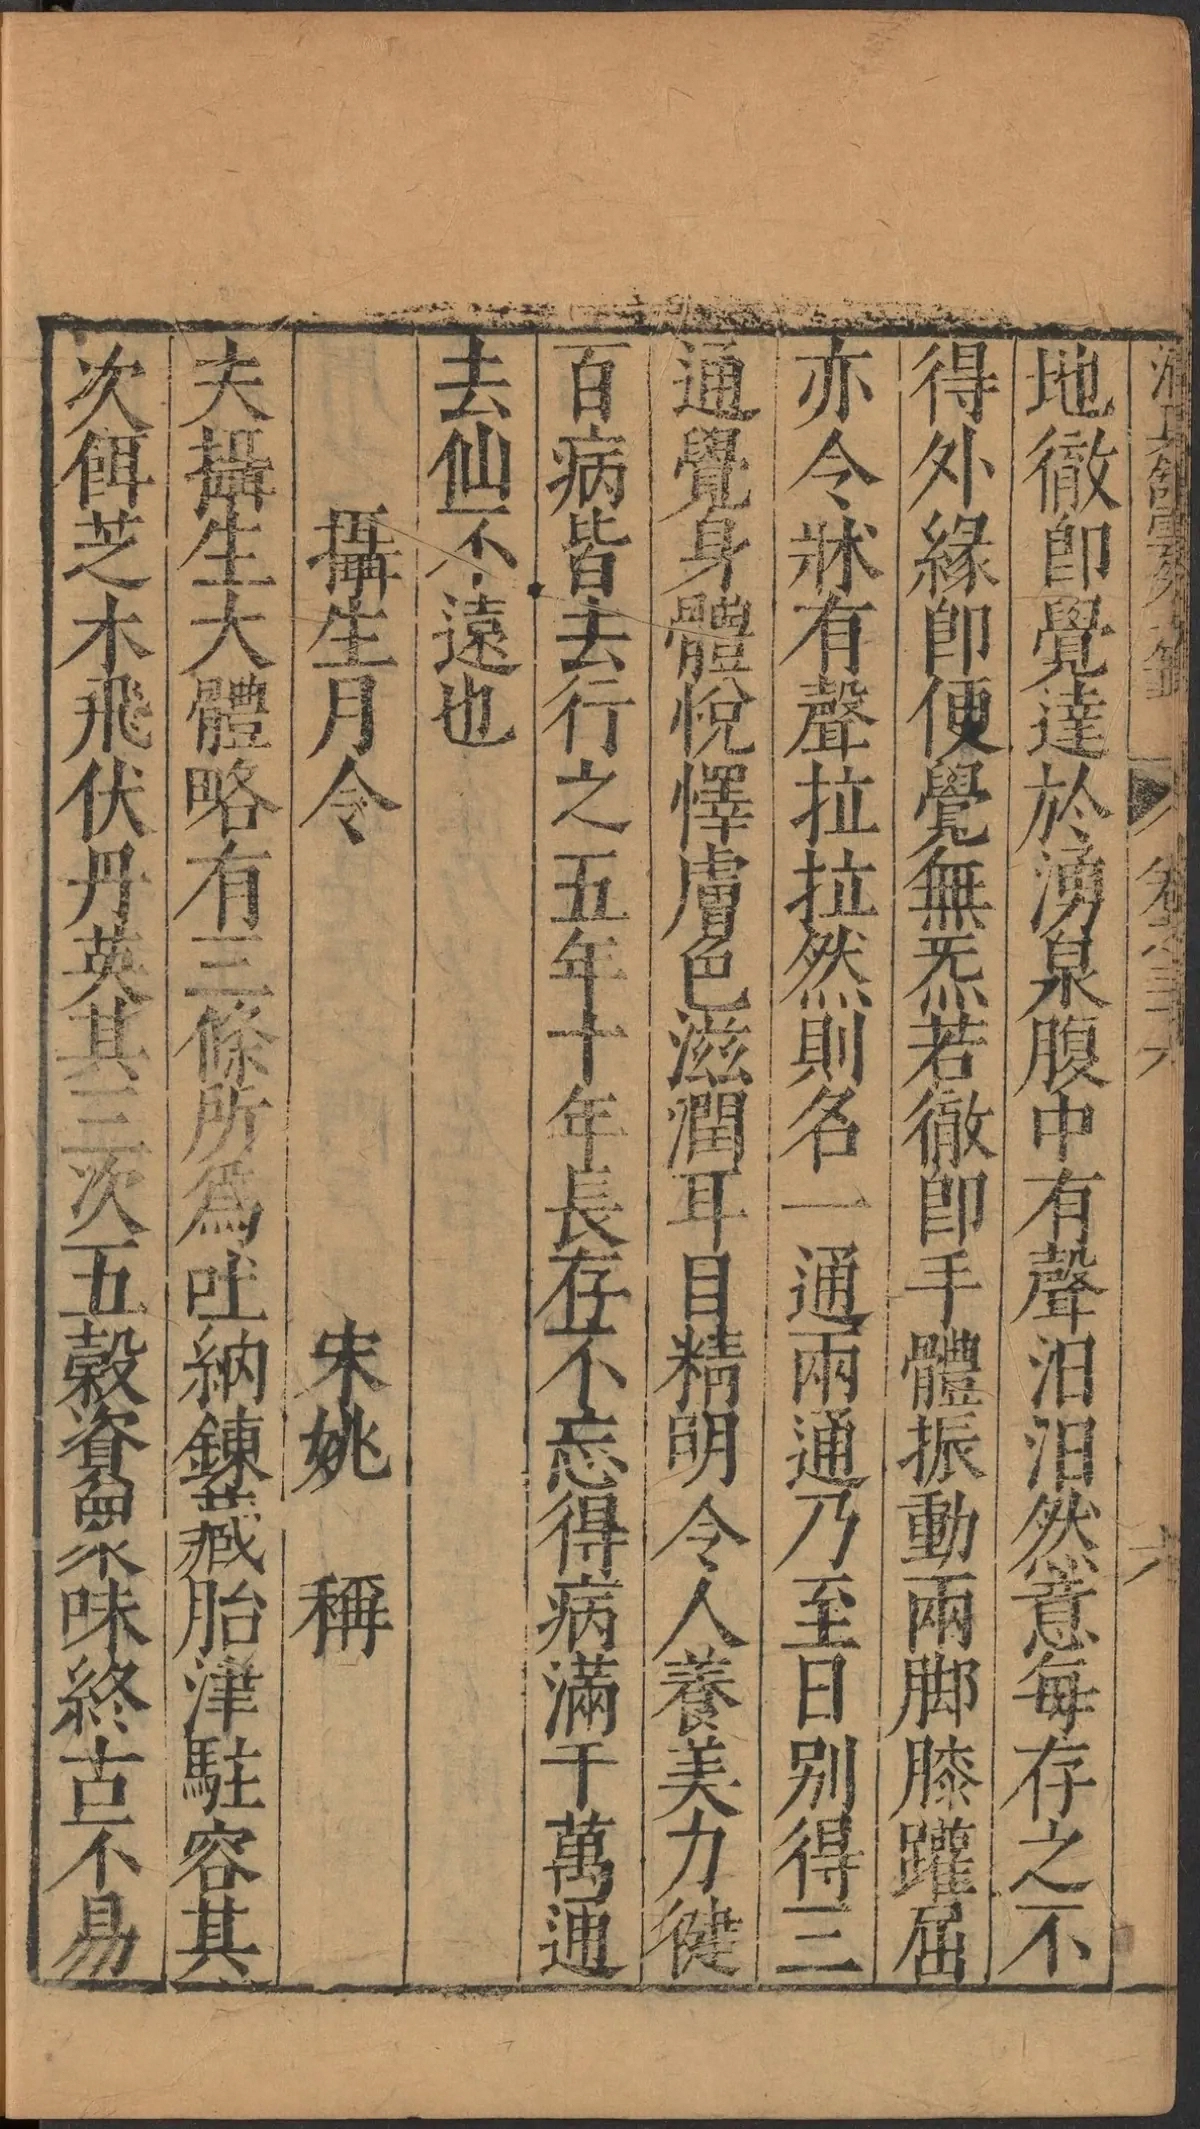 卷之三十六
六
地徹即覺達於湧泉腹中有聲汩汩然意每存之不
得外緣即便覺無炁若徹即手體振動兩脚膝躍屈
亦令牀有聲拉拉然則名一通兩通乃至日别得三
通覺身體悅懌膚色滋潤耳目精明令人養美力健
百病皆去行之五年十年長存不忘得病滿千萬通
去仙不遠也
攝生月令
宋姚　稱
夫攝生大體略有三條所爲吐納鍊藏胎津駐容其
次餌芝木飛伏丹英其三次五榖資衆味終古不易